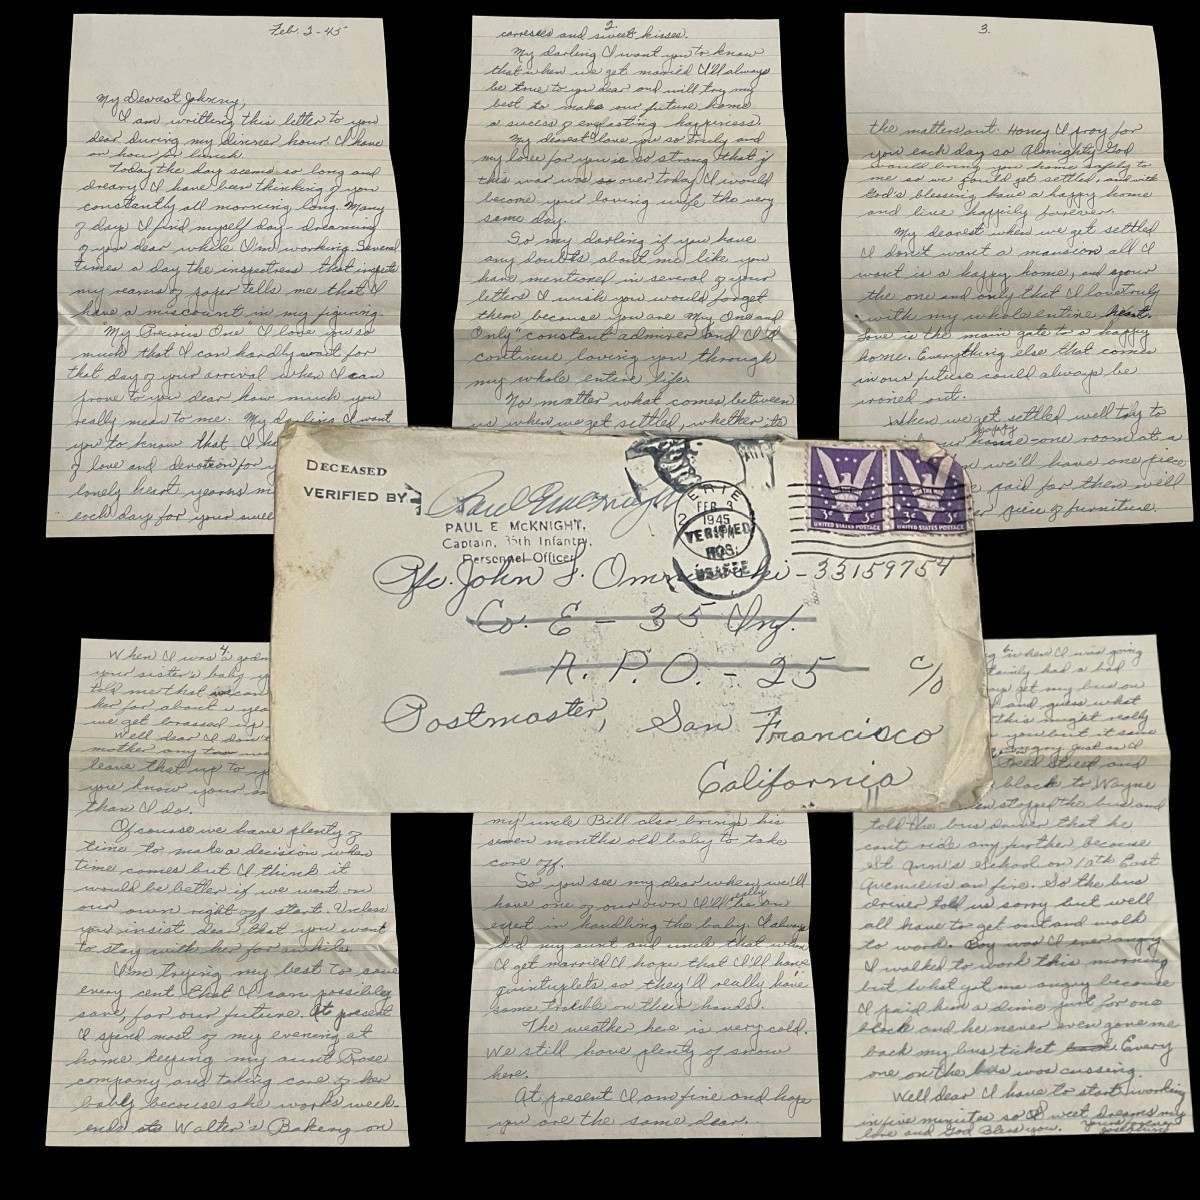 Feb. 2-45
My Dearest Johnny,
I am writting this letter to you
dear during my dinner hour. I have
an hour for lunch.
Today the day seems so long and
dreary I have been thinking of you
constantly all morning long. Many
of days I find myself day-dreaming
of you dear while I'm working. Several
times a day the inspectress that inspects
my reams of paper tells me that I
have a miscount in my figuring.
"My Precious One" I love you so
much that I can hardly wait for
that day of your arrival when I can
prove to you dear how much you
really mean to me. My darling I want
you to know that I
of love and devotion for
lonely heart yearns
each day for your
2.
caresses and sweet kisses.
My darling I want you to know
that when we get married I'll always
be true to you dear and will try my
best to make our future home
a sucess of everlasting happiness.
My dearest I love you so truly and
my love for you is so strong that if
this war was so over today I would
become your loving wife the very
same day.
So my darling if you have
any doubts about me like you
have mentioned in several of your
letters I wish you would forget
them because you are My One and
Only" constant admirer and I'll
continue loving you through
my whole entire life.
No matter what comes between
us when we get settled, whether its
3.
the matters out. Honey I pray for
you each day so Almighty God
would bring you home safely to
me so we could get settled, and with
God's blessing have a happy home
and live happily forever.
My dearest when we get settled
I don't want a mansion all I
want is a happy home, and your
the one and only that I love truly
with my whole entire heart.
Love is the main gate to a happy
home. Everything else that comes
in our future could always be
ironed out.
When we get settled we'll try to
our happy home-one room at a
we'll have one piece
paid for then we'll
piece of furniture.
DECEASED
VERIFIED BY
PAUL E McKNIGHT,
Captain, 35th Infantry,
Personnel Officer
ERIE
FEB 3
2
1945
VERIFIED
HQS.
USAFFE
3¢ 3¢
UNITED STATES POSTAGE
3¢ 3¢
UNITED STATES POSTAGE
Pfc. John S. - 33159754
Co. E - 35 Inf.
A. P. O. - 25 c/o
Postmaster, San Francisco
California
4.
When I was
your sister's baby
told me that we can
her for about a year
we get
Well dear I don't
mother any
leave that up to
you know your
than I do.
Of course we have plenty of
time to make a decision when
time comes but I think it
would be better if we went on
our own right off start. Unless
you insist dear that you want
to stay with her for awhile.
I'm trying my best to save
every cent that I can possibley
save, for our future. At present
I spend most of my evening at
home keeping my aunt Rose
company and taking care of her
baby because she works week-
ends at Walter's Bakery on
my uncle Bill also brings his
seven months old baby to take
care off.
So you see my dear when we'll
have one of our own I'll really be an
expert in handling the baby. I always
told my aunt and uncle that when
I get married I hope that I'll have
quintuplets so they'll really have
some trouble on their hands.
The weather here is very cold.
We still have plenty of snow
here.
At present I am fine and hope
you are the same dear.
6.
when I was going
certainly had a bad
get my bus on
and guess what
this might really
you but it sure
angry just as I
Reed Street and
block to Wayne
stopped the bus and
told the bus driver that he
cant ride any further because
St Ann's School on 10th East
Avenue is on fire. So the bus
driver told us sorry but well
all have to get out and walk
to work. Boy was I ever angry
I walked to work this morning
but what got me angry because
I paid him a dime just for one
block and he never even gave me
back my bus ticket. Every
one on the bus was cussing.
Well dear I have to start working
in five minutes so Sweet Dreams my
love and God Bless you.